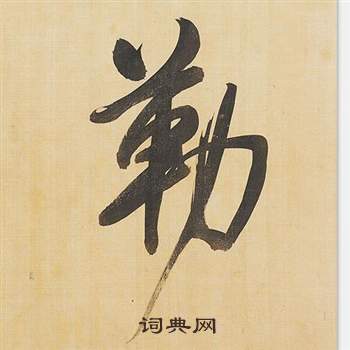 勒
词典网